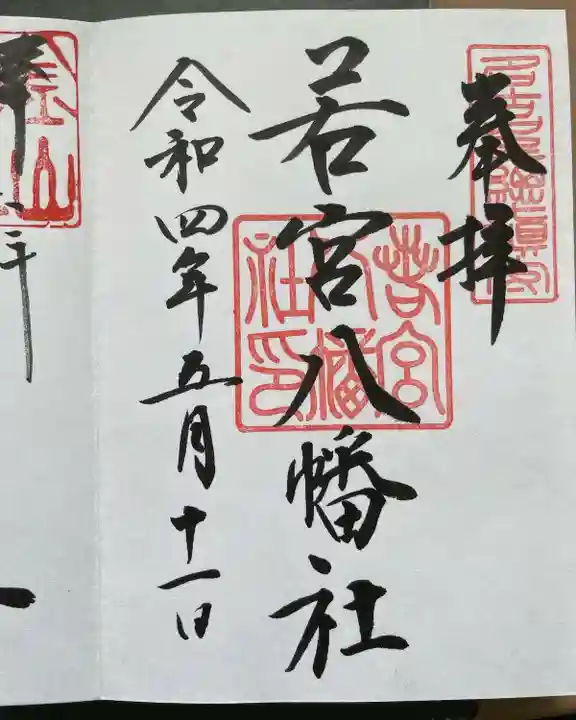 奉拝
若宮八幡社
若宮八幡社印
令和四年五月十一日
金山